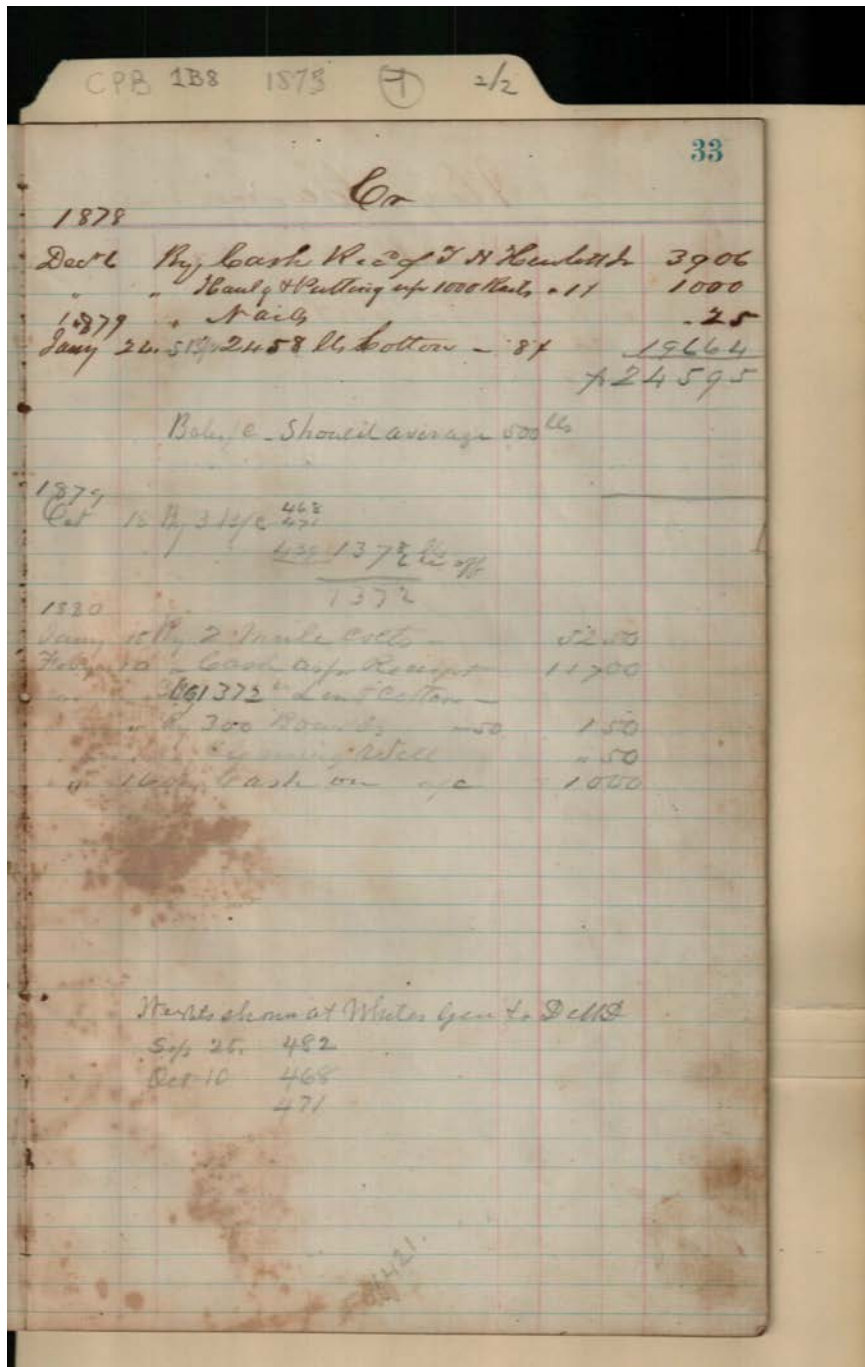 CPB 1B8 1873 1 2/2
33
Cr
1878
Dec 6 By Cash Rec'd of T H 3906
" " Haulg & Putting up 1000 Rails - 1¢ 1000
1879 " Nails .25
Jany 24 5 B/c 2458 lbs Cotton - 8¢ 19664
$24595
Bales/c - Should average 500 lbs
1879
Oct 18 By 3 B/c 468
471
1372 lb off
1372
1880
Jany 15 By 2 Mule Colts - 5250
Feby 10 " Cash as pr Receipt 11700
1372 lbs Lint Cotton -
" By 300 Boards - 50 150
Well " 50
" 16 By Cash on a/c 1000
shown at Whites Gin to
Sep 25. 482
Oct 10 468
471
1421.